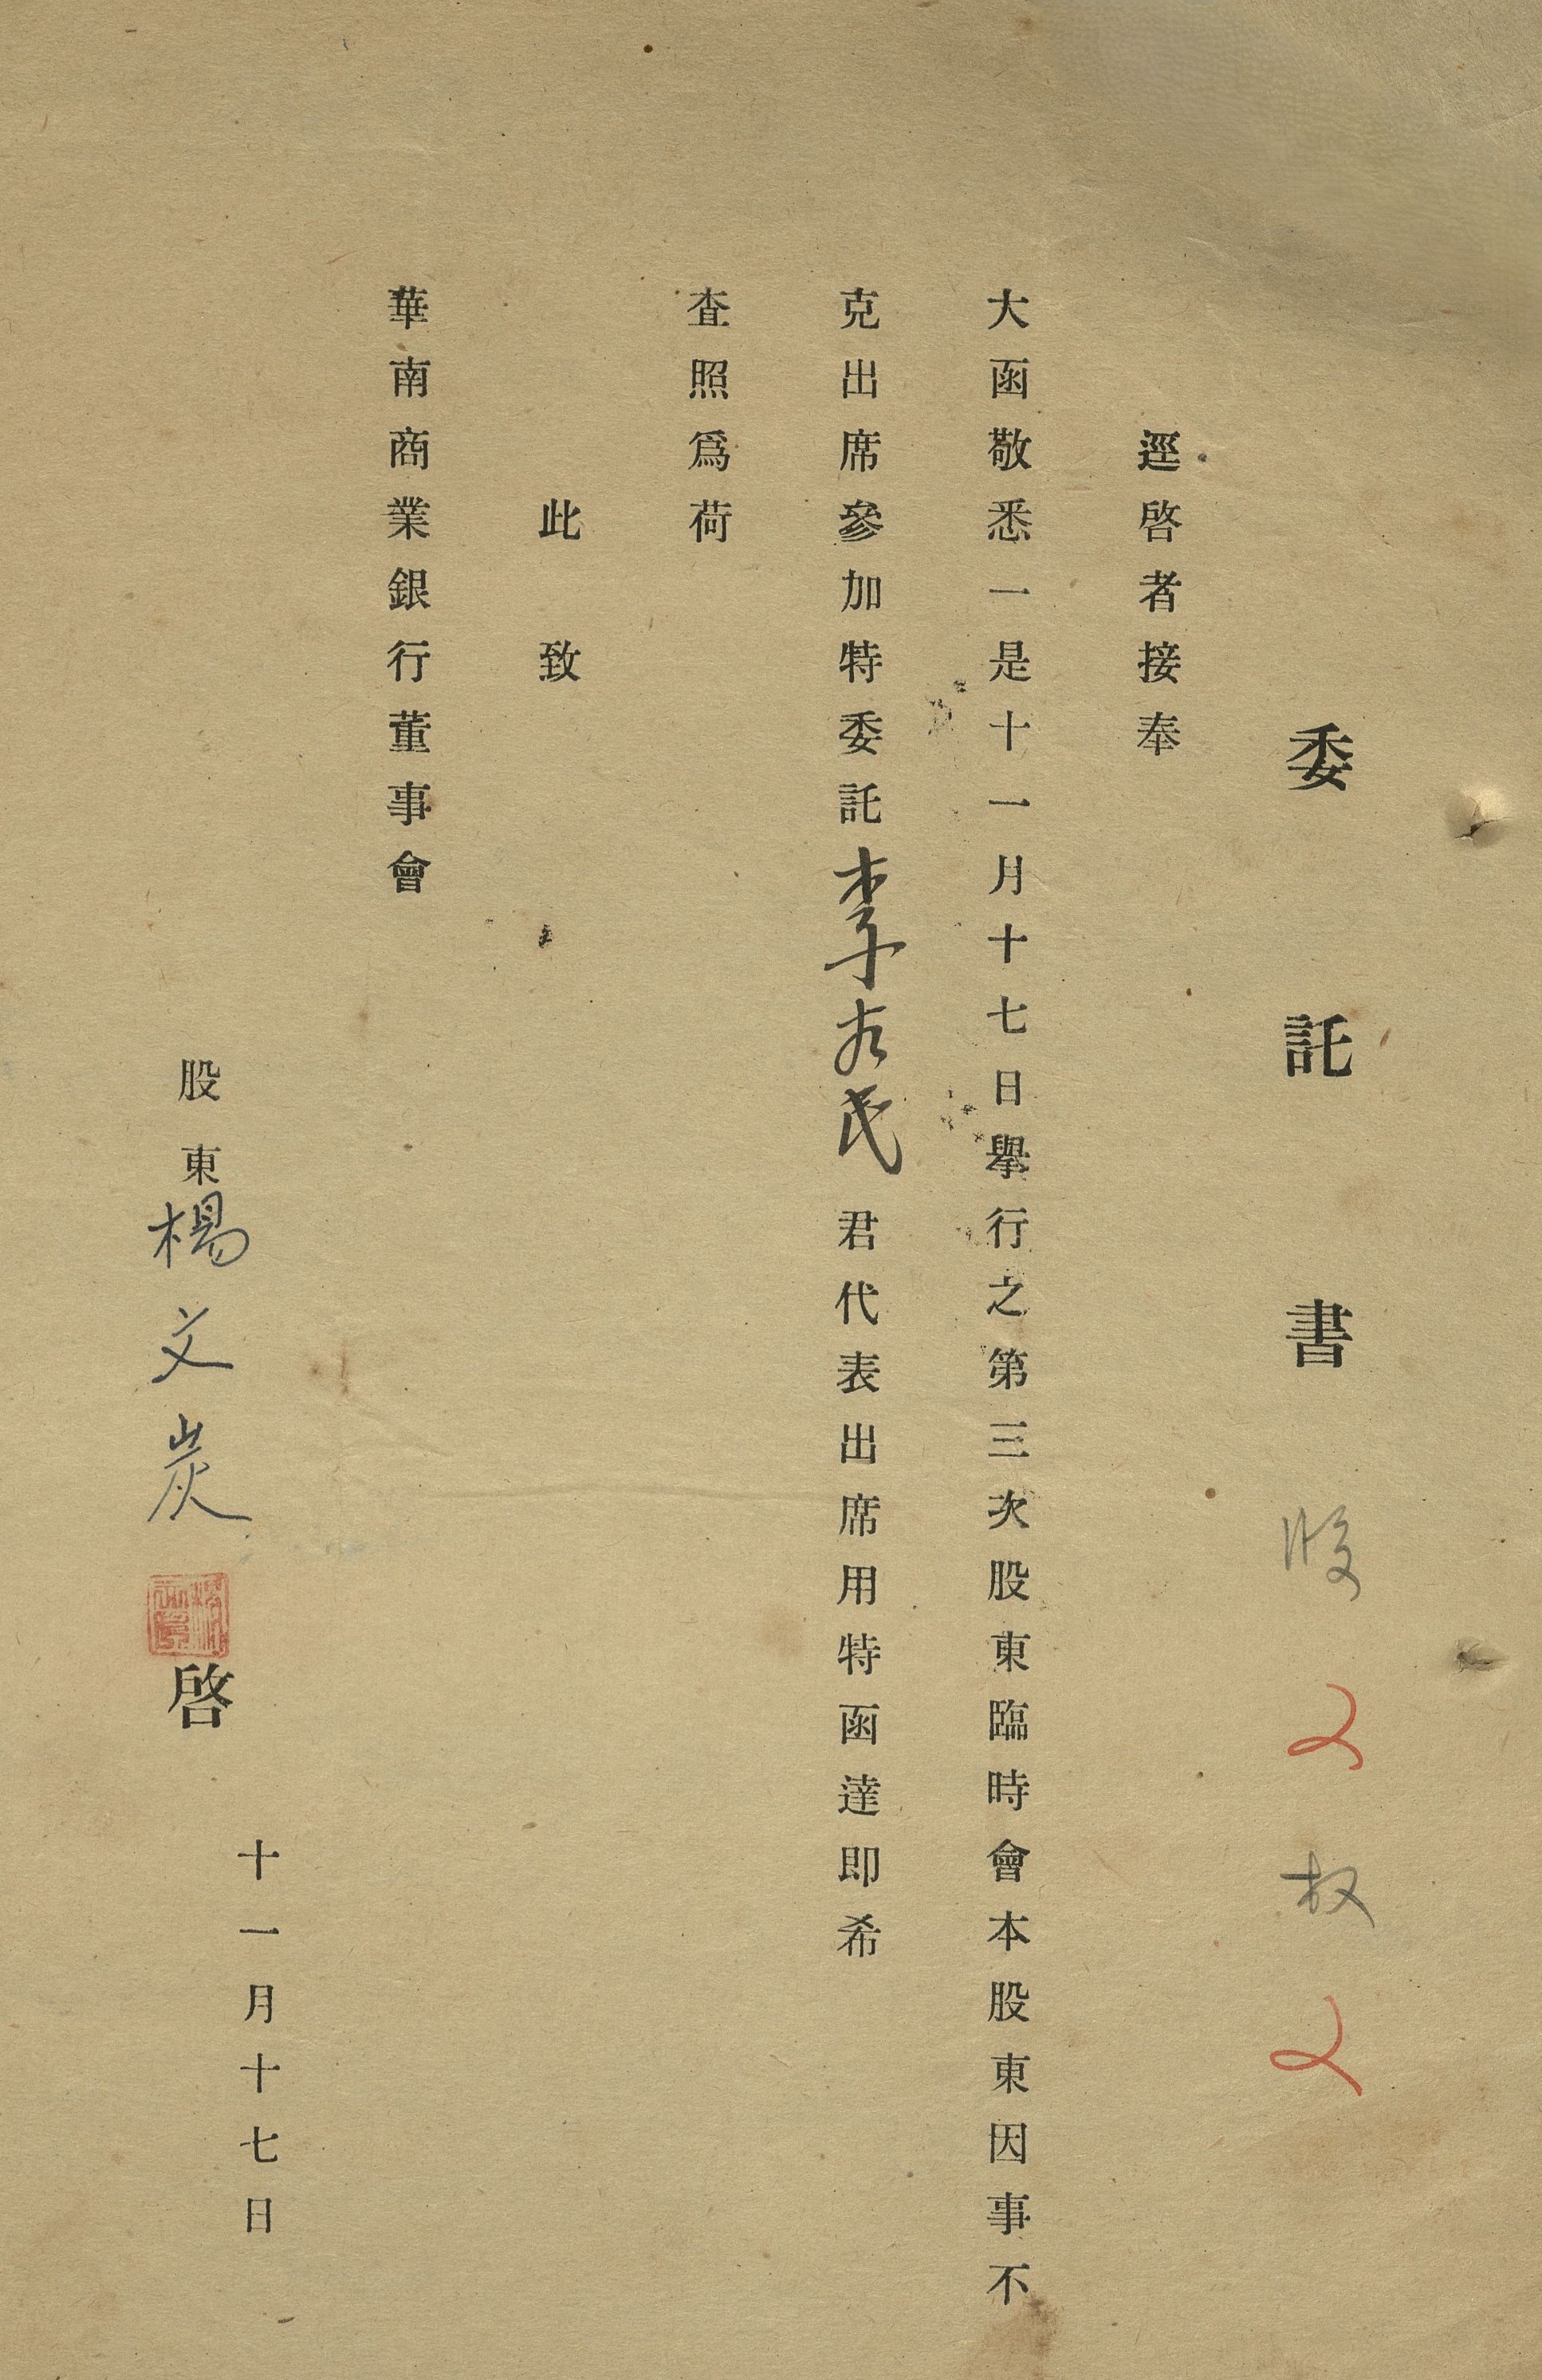 委託書 股 2 权 2
逕啓者接奉
大函敬悉一是十一月十七日舉行之第三次股東臨時會本股東因事不
克出席參加特委託李友民君代表出席用特函達即希
查照爲荷
此致
華南商業銀行董事會
股東楊文炭啓
十一月十七日